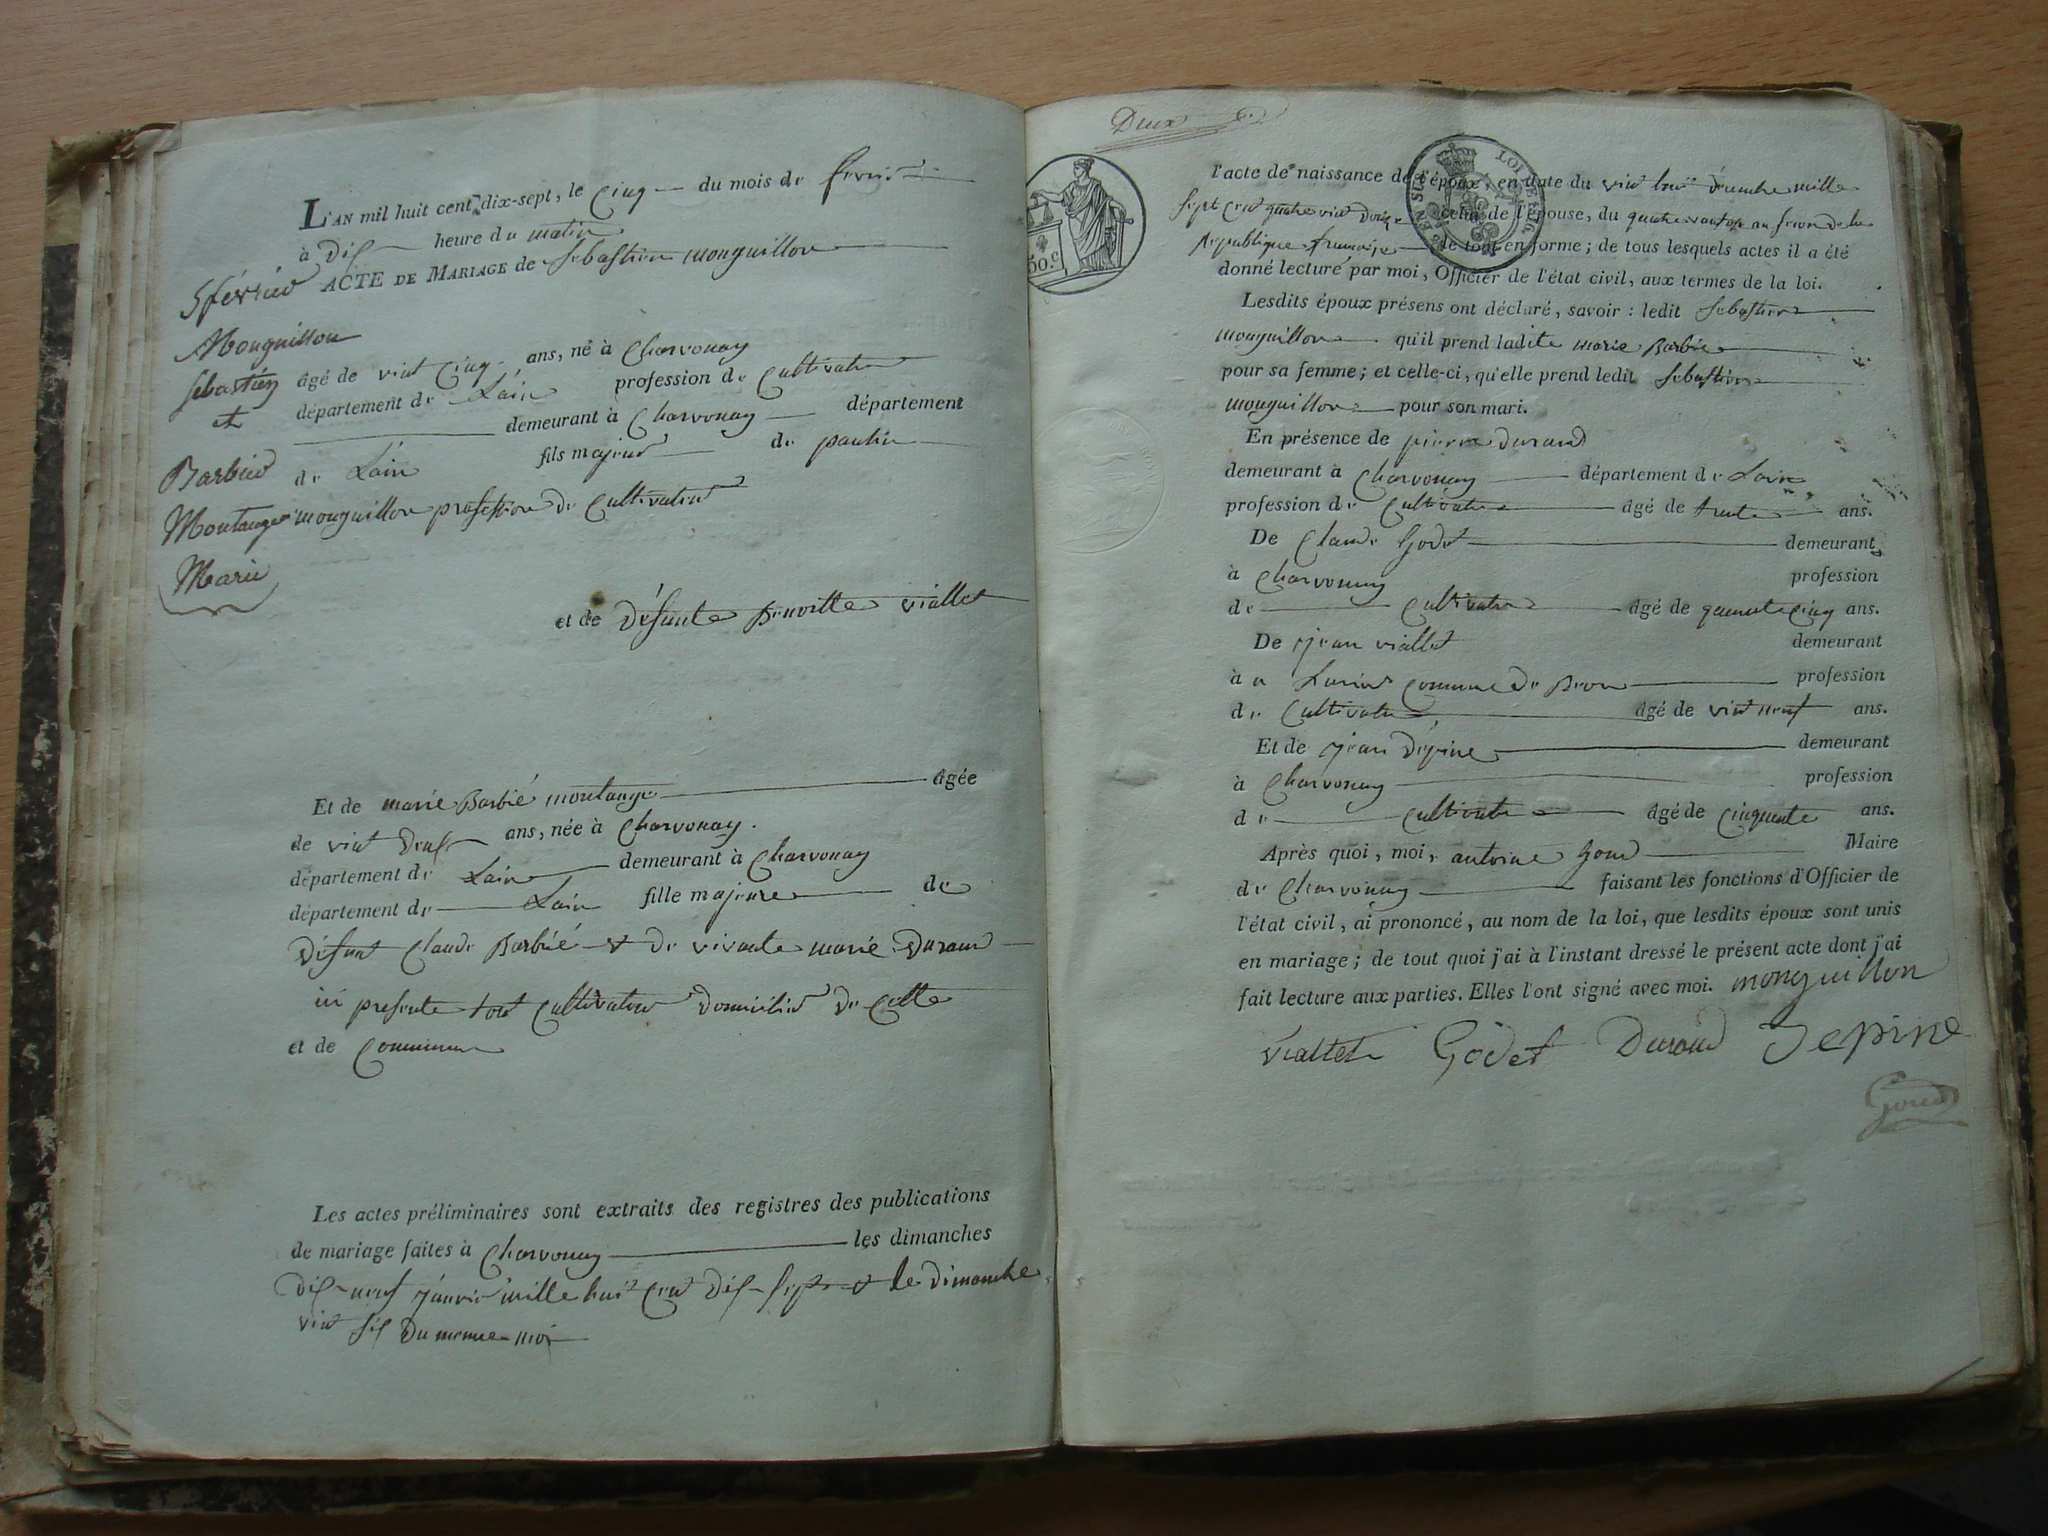 L'AN mil huit cent dix-sept, le Cinq du mois de fevrier
à Dix heure du matin
ACTE DE MARIAGE de Sebastien monguillon
5 février
Monguillon
Sebastien
et
Barbier
Montange
Marie
âgé de vint Cinq ans, né à Charvonay
département de Lain profession de Cultivatr
demeurant à Charvonay département
de Lain fils majeur de paulin
monguillon profession de Cultivateur
et de défunte Benoitte viallet
Et de marie Barbié montange âgée
de vint Deux ans, née à Charvonay.
département de Lain demeurant à Charvonay
département de Lain fille majeure de
défunt Claude Barbié et de vivante marie Durand
ici presente tout Cultivateur Domicilié de Cette
et de Commune
Les actes préliminaires sont extraits des registres des publications
de mariage faites à Charvonay les dimanches
Dix neuf janvier mille huit Cent Dix sept et le Dimanche
vint six du meme moi
Deux
50.c
LOI DE 1816.
l'acte de naissance de l'époux, en date du vint huit decembre mille
sept Cent quatre vint Douze celui de l'épouse, du quatre vantose an
Republique francaise le tout en forme; de tous lesquels actes il a été
donné lecture par moi, Officier de l'état civil, aux termes de la loi.
Lesdits époux présens ont déclaré, savoir: ledit Sebastien
monguillon qu'il prend ladite marie Barbié
pour sa femme; et celle-ci, qu'elle prend ledit Sebastien
monguillon pour son mari.
En présence de pierre durand
demeurant à Charvonay département de Lain
profession de Cultivatr âgé de trente ans.
De Claude Godet demeurant
à Charvonay profession
de Cultivatr âgé de quarante Cinq ans.
De jean viallet demeurant
à Commune de Beon profession
de Cultivatr âgé de vint neuf ans.
Et de jean dépine demeurant
à Charvonay profession
de Cultivatr âgé de Cinquante ans.
Après quoi, moi, antoine Goud Maire
de Charvonay faisant les fonctions d'Officier de
l'état civil, ai prononcé, au nom de la loi, que lesdits époux sont unis
en mariage; de tout quoi j'ai à l'instant dressé le présent acte dont j'ai
fait lecture aux parties. Elles l'ont signé avec moi. monguillon
viallet Godet Durand Depine
Goud